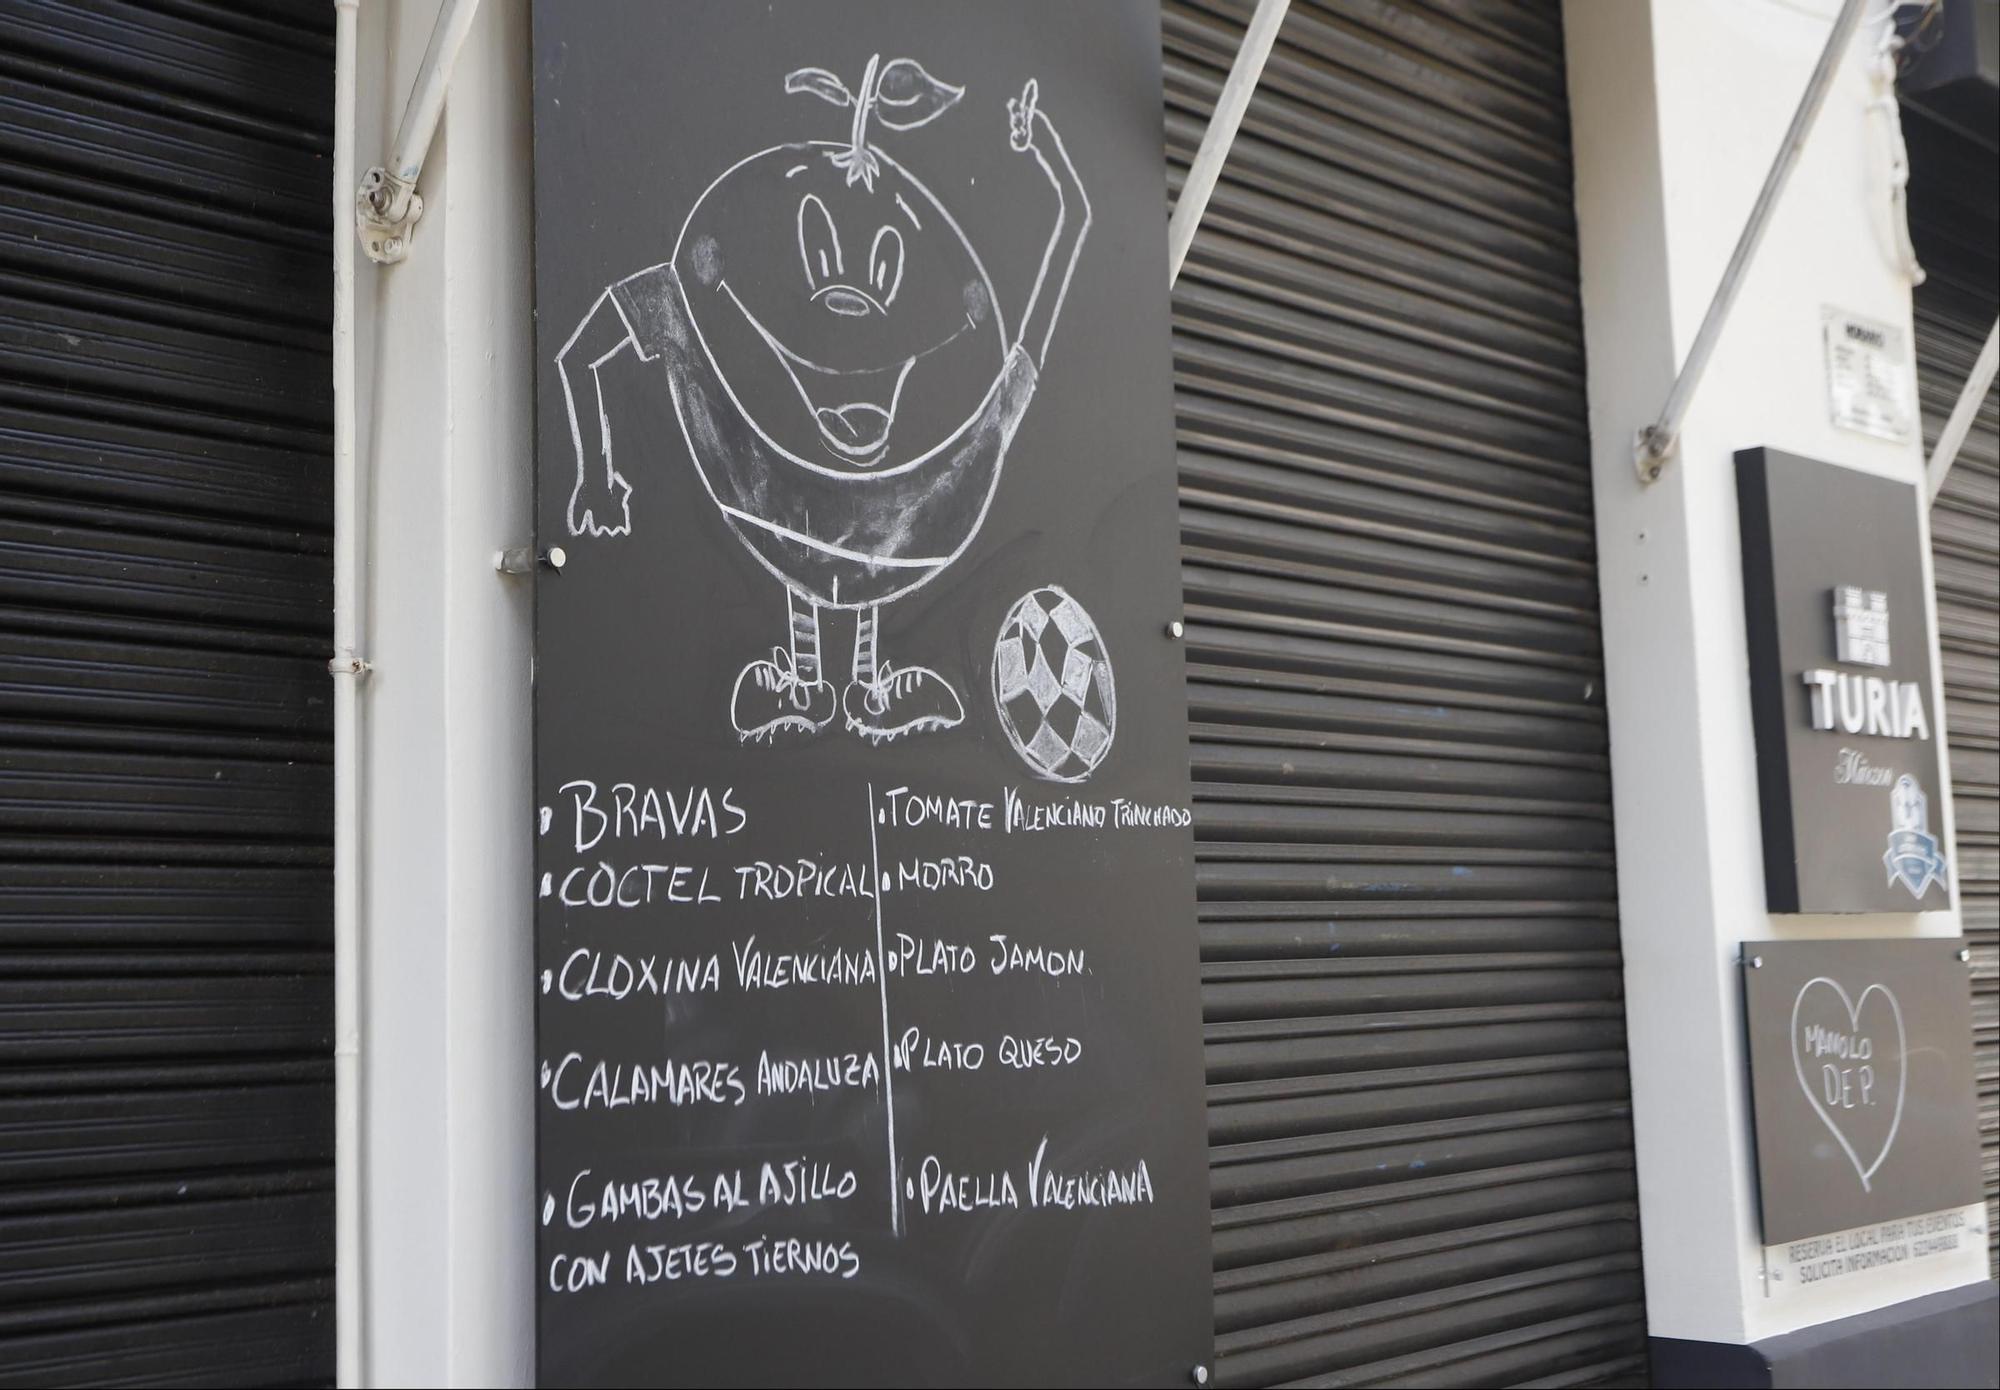 BRAVAS
COCTEL TROPICAL
CLOXINA VALENCIANA
CALAMARES ANDALUZA
GAMBAS AL AJILLO
CON AJETES TIERNOS
TOMATE VALENCIANO TRINCHADO
MORRO
PLATO JAMON.
PLATO QUESO
PAELLA VALENCIANA
HORARIO
TURIA
MANOLO
D.E.P.
RESERVA EL LOCAL PARA TUS EVENTOS
SOLICITA INFORMACION